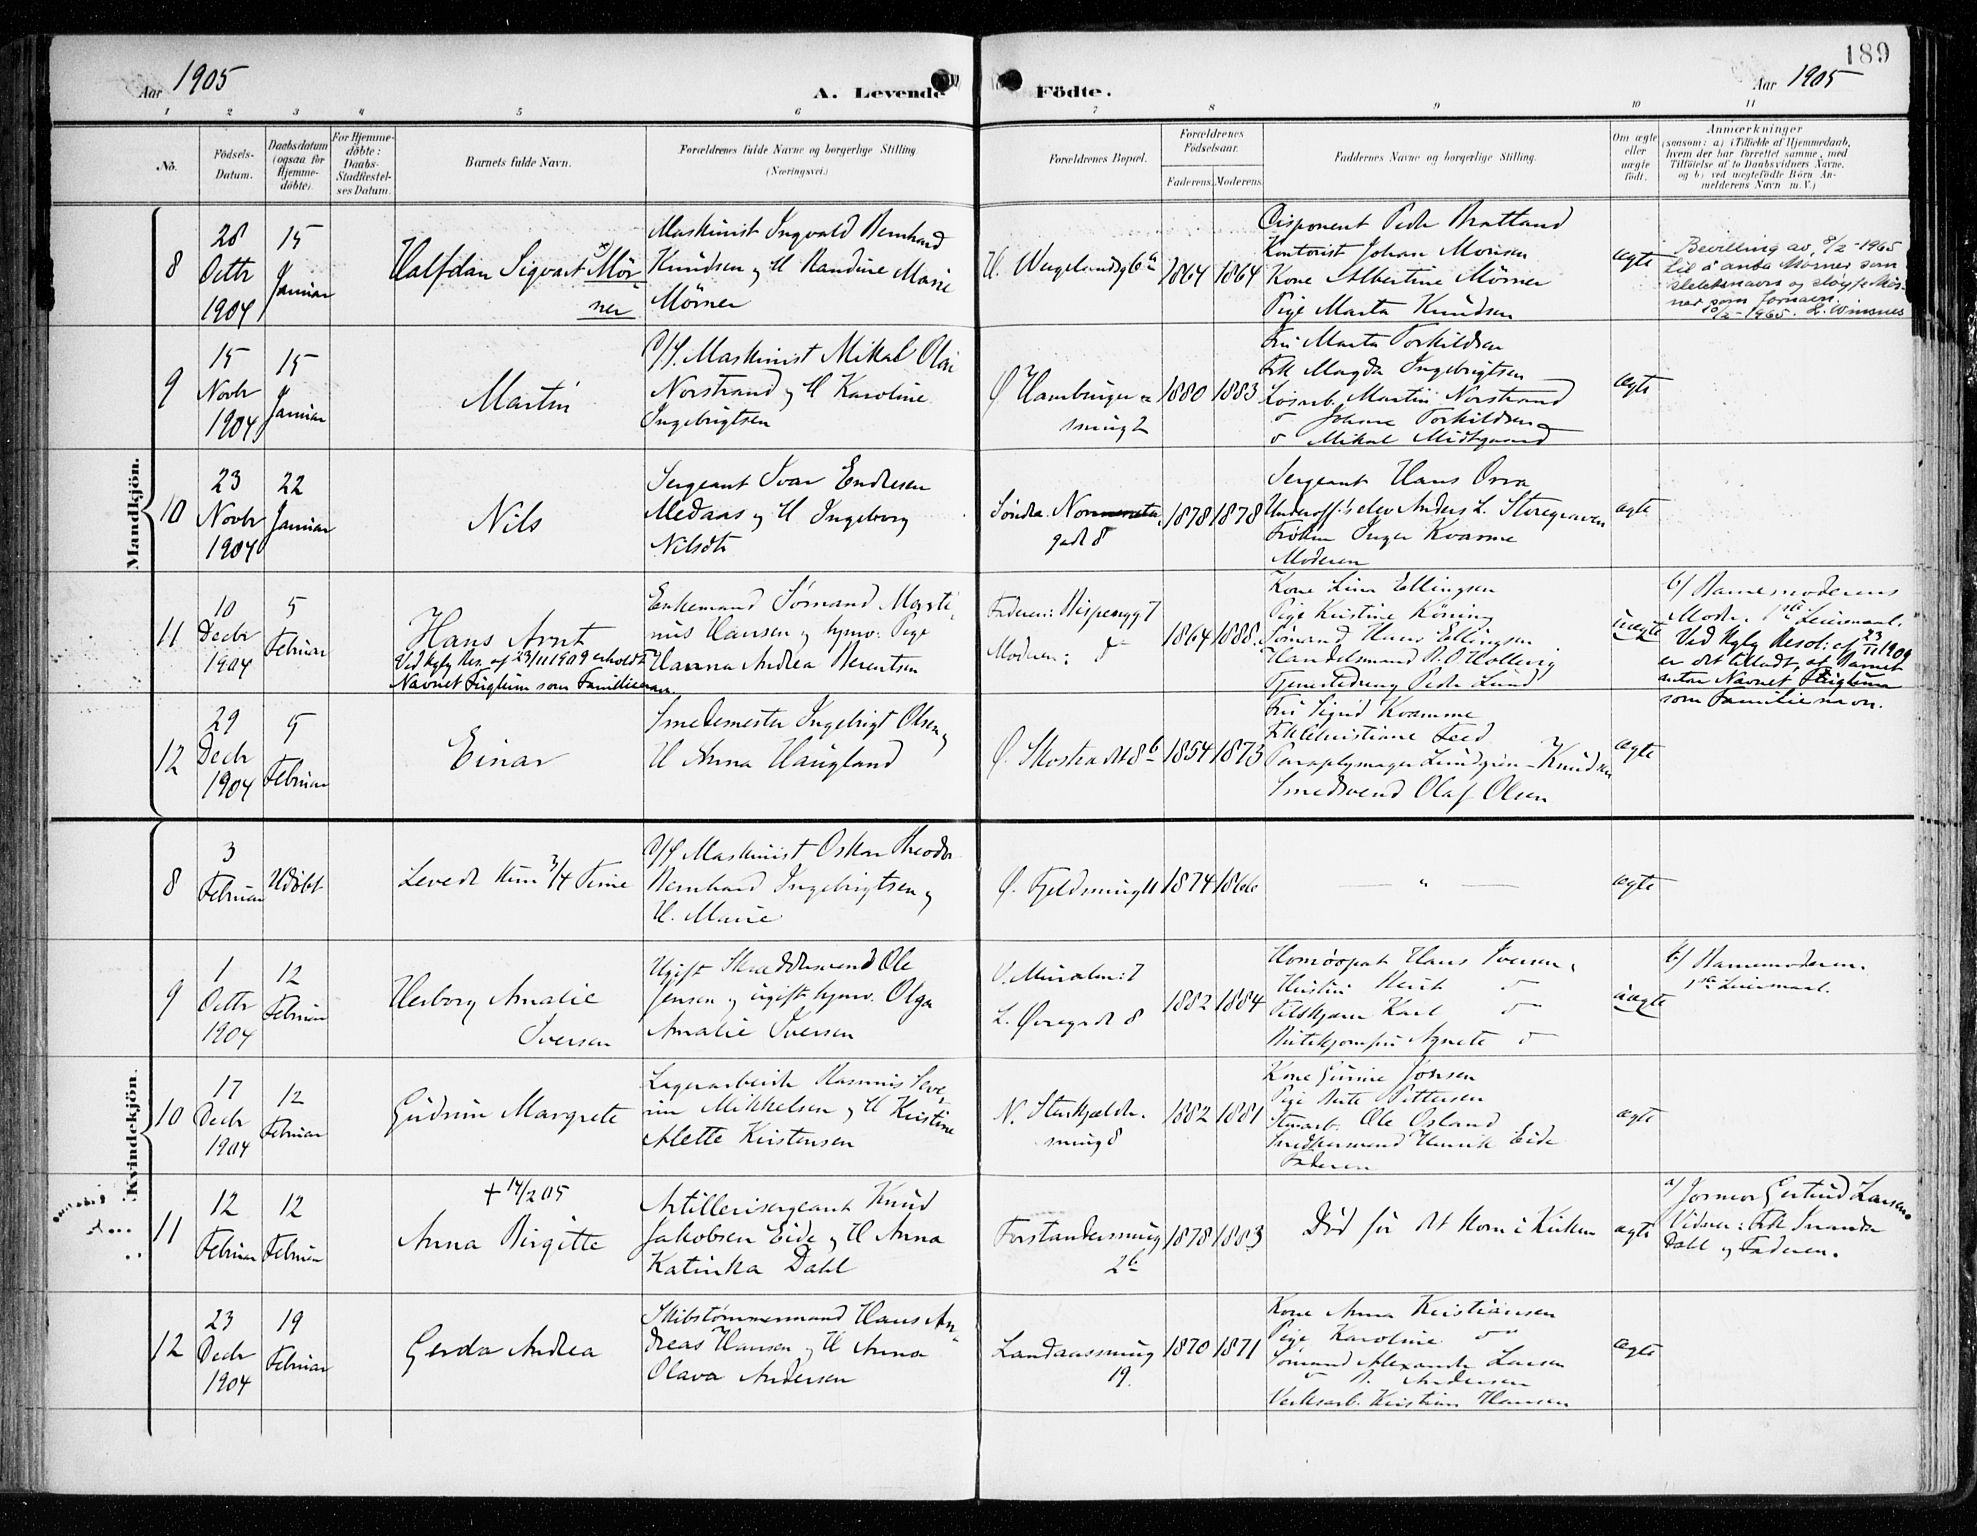 189
Aar 1905
A. Levende Födte.
Aar 1905
1 2 3 4 5 6 7 8 9 10 11
No.
Födsels-Datum.
Daabsdatum (ogsaa for Hjemme-döbte).
For Hjemme-döbte: Daabs-Stadfæstel-ses Datum.
Barnets fulde Navn.
Forældrenes fulde Navne og borgerlige Stilling. (Næringsvei.)
Forældrenes Bopæl.
Forældrenes Födselsaar.
Faderens. Moderens.
Faddernes Navne og borgerlige Stilling.
Om ægte eller uægte födt.
Anmærkninger
(saasom: a) i Tilfælde af Hjemmedaab, hvem der har forrettet samme, med Tilföielse af to Daabsvidners Navne, og b) ved uægtefödte Börn An-melderens Navn m.V.)
Mandkjön.
8
28 Octbr 1904
15 Januar
Halfdan Sigvart Mör-
ner
Maskinist Ingvald Bernhard
Knudsen og H Randine Marie
Mörner
H. Wergelandsg 6a
1864 1864
Disponent Peder Bratland
Kontorist Johan Monsen
Kone Albertine Mörner
Pige Marta Knudsen
ægte
Bevilling av 8/2-1965
til å anta Mørner som
slektsnavn og sløyfe Mør-
ner som fornavn.
10/2-1965. L. Winsnes
9
15 Novbr 1904
15 Januar
Martin
D/S. Maskinist Mikal Olai
Norstrand og H Karoline
Ingebrigtsen
1880 1883
Fru Marta Torkildsen
Frk Magda Ingebrigtsen
Løsarb. Martin Norstrand
Johan Torkildsen
Mikal Midtgaard
ægte
10
23 Novbr 1904
22 Januar
Nils
Sergeant Ivar Endresen
Medaas og H Ingeborg
Nilsdtr
Søndre
gade 8
1878 1878
Sergeant Hans Orra
Underoff.s elev Anders L. Storegraven
Frøken Inger Kvamme
Moderen
ægte
11
10 Decbr 1904
5 Februar
Hans Arnt
Ved Kgl Res. af 23/11 1909 erholdt
Navnet Fuglum som Familienavn
Enkemand Sømand Marti-
nus Hansen og Pige
Hanna Andrea Berentsen
Faderen:
Moderen:
1864 1888
Kone Lina Ellingsen
Pige Kristine Köning
Sömand Hans Ellingsen
Handelsmand
Tjenestedreng Peder Lund
uægte
b) Barnemoderens
Moder. 1ste Leiermaal.
Ved Kgl. Resol. af 23/11 1909
er det tilladt, at Barnet
antar Navnet Fuglum
som Familienavn.
12
29 Decbr 1904
5 Februar
Einar
Smedemester Ingebrigt Olsen og
H Anna Haugland
Ø. Skostrædet 8b
1854 1875
Fru Sigrid Kvamme
Frk Christiane Leed
Paraplymager Lundgren-Knudsen
Smedsvend Olaf Olsen
ægte
Kvindekjön.
8
3 Februar
Udöbt
Levede kun 3/4 Time
D/S Maskinist Oskar Theodor
Bernhard Ingebrigtsen og
H. Marie
Ø. Fjeldsmug 11
1874 1866
— " —
ægte
9
1 Octbr 1904
12 Februar
Herborg Amalie
Iversen
Ugift Skræddersvend Ole
Jensen og ugift Olga
Amalie Iversen
L. Øvregade 8
1882 1884
Homöopat Hans Iversen
Karl
Agnete
uægte
b) Barnemoderen.
1ste Leiermaal.
10
17 Decbr 1904
12 Februar
Gudrun Margrete
Lagerarbeider Rasmus Seve-
rin Mikkelsen og H Kristine
Alette Kristensen
smug 8
1882 1881
Kone Gurine Johsen
Pige Pittersen
Ole Osland
Henrik Eide
Faderen
ægte
11
12 Februar
12 Februar
+ 14/2 05
Anna Birgitte
Artillerisergeant Knud
Jakobsen Eide og H Anna
Katinka Dahl
Forstandersmug
2b
1878 1883
Död før det kom i Kirken
ægte
a) Jormor Gertrud Larsen.
Vidner: Frk
Dahl og Faderen.
12
23 Decbr 1904
19 Februar
Gerda Andrea
Skibstømmermand Hans An-
dreas Hansen og H Anna
Olava Andersen
Landaassmug
19.
1870 1871
Kone Anna Kristiansen
Pige Karoline
Sömand Alexander Larsen
Andersen
Verksarb. Kristian Hansen
ægte